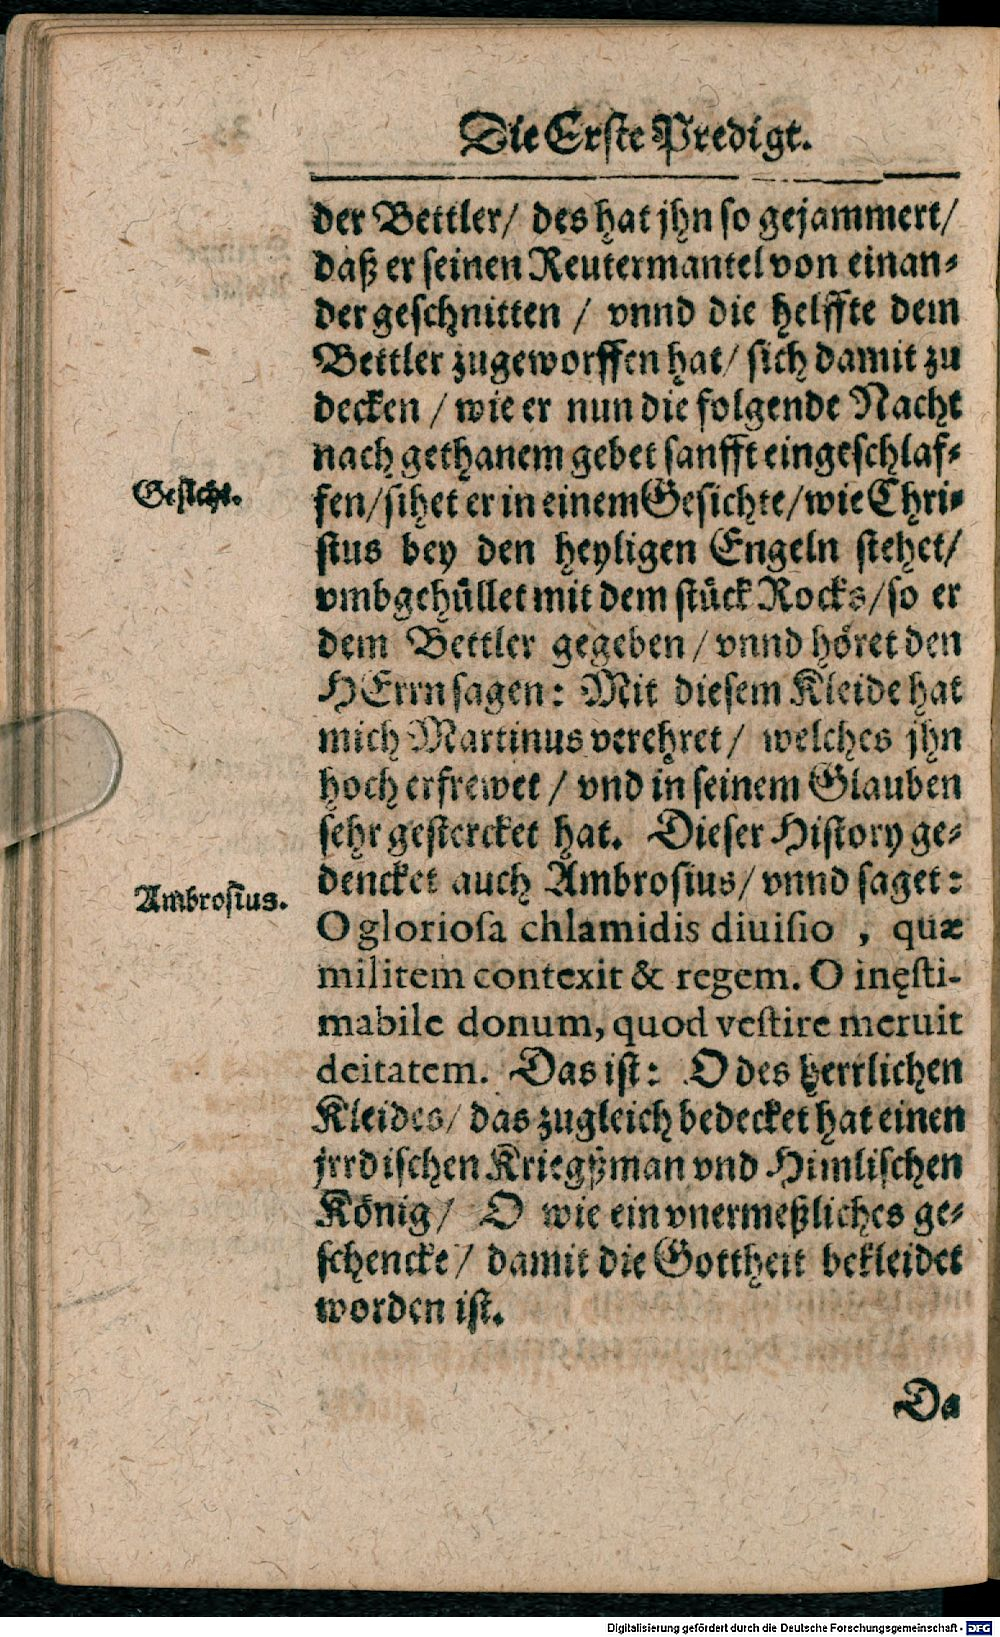 Die Erste Predigt.
der Bettler/ des hat jhn so gejammert/
daß er seinen Reutermantel von einan⸗
der geschnitten / vnnd die helffte dem
Bettler zugeworffen hat/ sich damit zu
decken / wie er nun die folgende Nacht
nach gethanem gebet sanfft eingeschlaf⸗
Gesicht.
fen/ sihet er in einem Gesichte/ wie Chri⸗
stus bey den heyligen Engeln stehet/
vmbgehüllet mit dem stück Rocks/ so er
dem Bettler gegeben / vnnd höret den
HErrn sagen: Mit diesem Kleide hat
mich Martinus verehret/ welches jhn
hoch erfrewet / vnd in seinem Glauben
sehr gestercket hat. Dieser History ge⸗
Ambrosius.
dencket auch Ambrosius/ vnnd saget:
O gloriosa chlamidis diuisio , quæ
militem contexit & regem. O inęsti-
mabile donum, quod vestire meruit
deitatem. Das ist: O des herrlichen
Kleides/ das zugleich bedecket hat einen
jrrdischen Kriegßman vnd Himlischen
König/ O wie ein vnermeßliches ge⸗
schencke/ damit die Gottheit bekleidet
worden ist.
Da
Digitalisierung gefördert durch die Deutsche Forschungsgemeinschaft - DFG